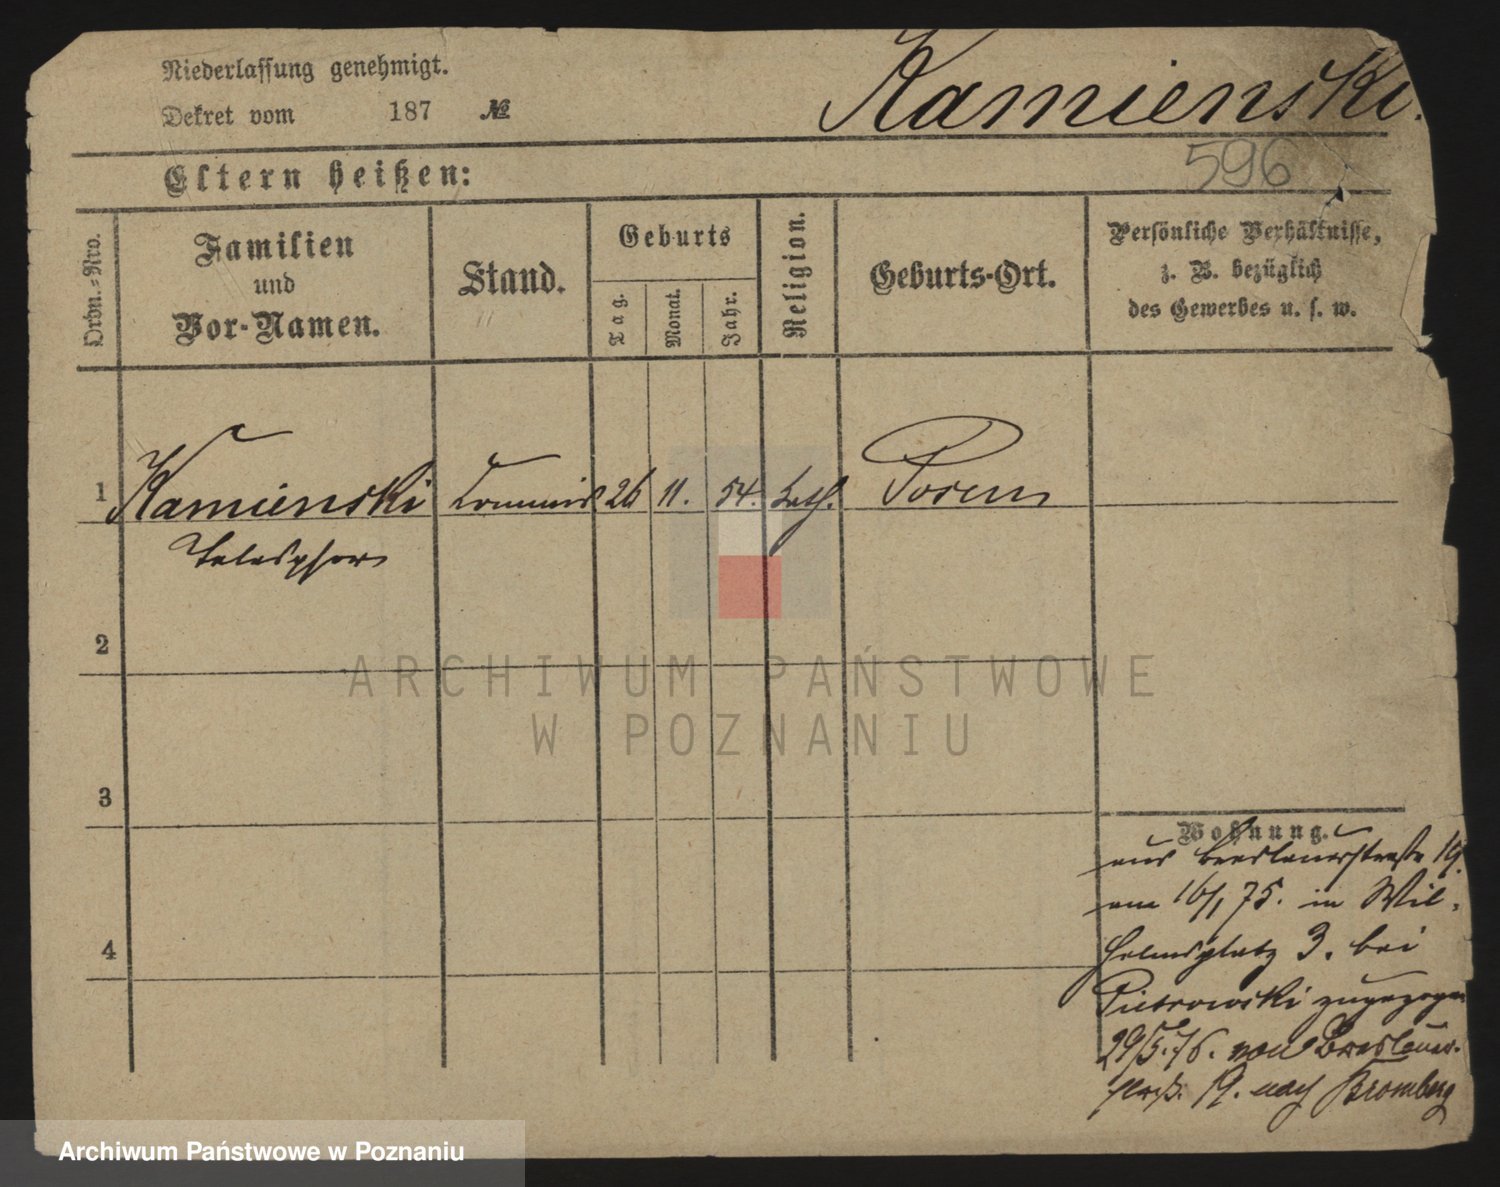 Niederlassung genehmigt.
Dekret vom 187 №
Kamienski.
596
Eltern heißen:
Ordn.-Nro.
Familien
und
Vor-Namen.
Stand.
Geburts
Tag.
Monat.
Jahr.
Religion.
Geburts-Ort.
Persönliche Verhältnisse,
z. B. bezüglich
des Gewerbes u. s. w.
1 Kamienski Commis 26 11. 54. kath. Posen
Telesphor
2
3
4
Wohnung.
aus Breslauerstraße 19.
am 16/1 75. in Wil-
helmsplatz 3. bei
Pietrowski zugezogen
29/5. 76. von Breslauer-
straß. 19. nach Bromberg
ARCHIWUM PAŃSTWOWE
W POZNANIU
Archiwum Państwowe w Poznaniu